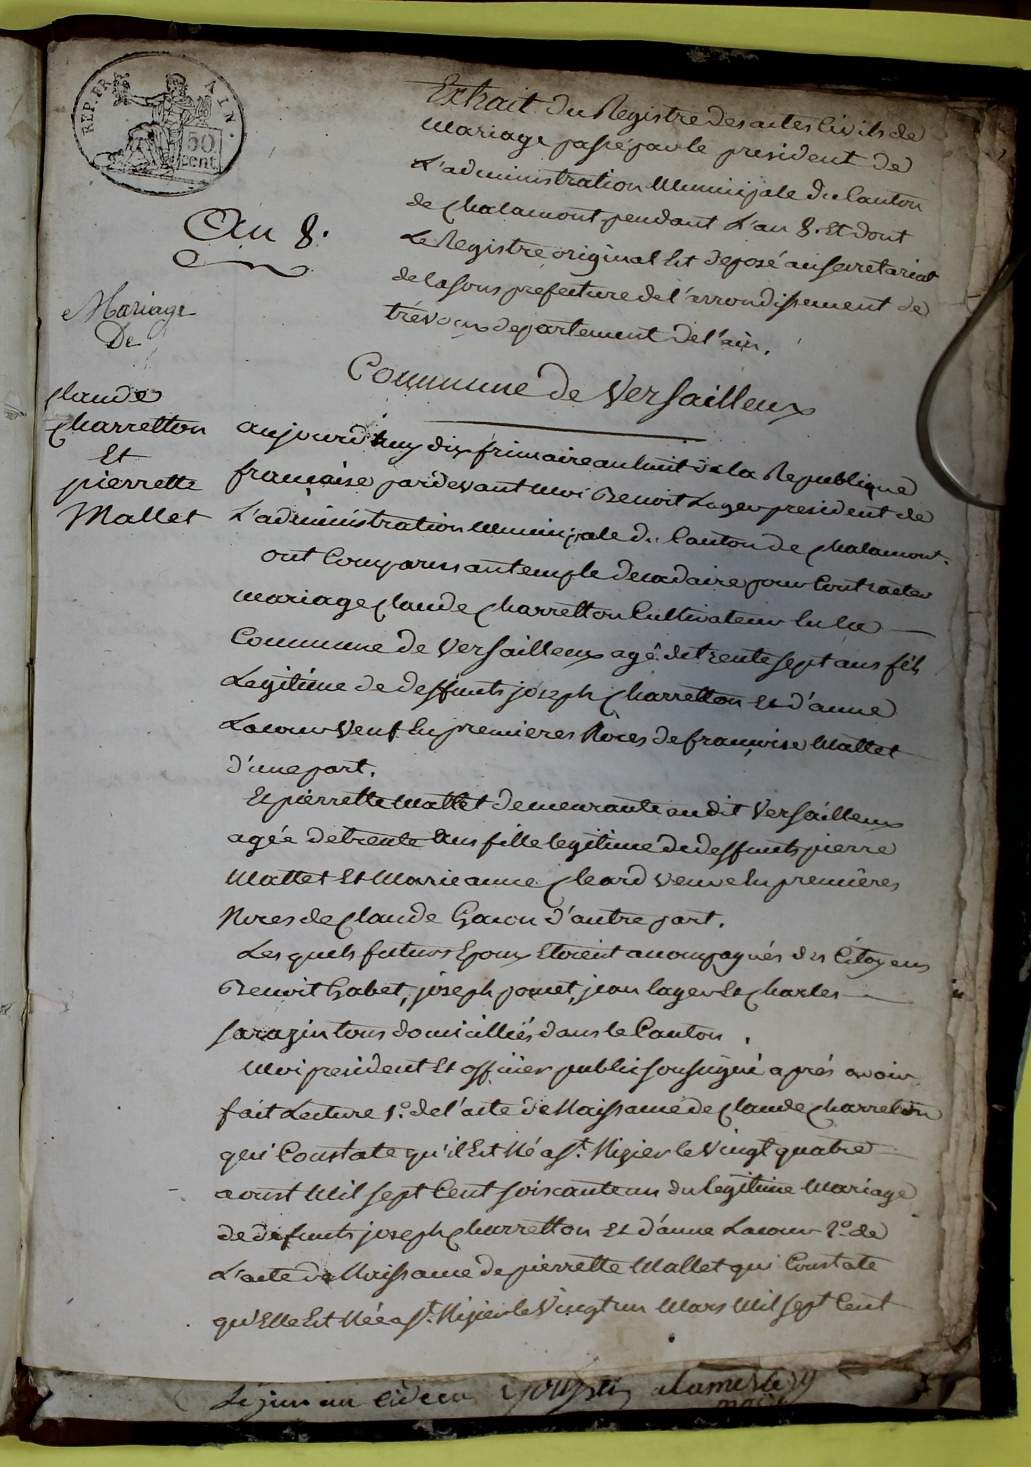 REP. FRA
AIN.
50
cent.
Extrait du Registre des actes Civils de
Mariage passé par le president de
L'administration Municipale du Canton
de Chalamont pendant L'an 8. Et dont
Le Registre original Est deposé au secretariat
de la sous prefecture de l'arrondissement de
trévoux departement de l'ain.
An 8.
Commune de Versailleux
Mariage
De
Claude
Charretton
Et
pierrette
Mallet
aujourd'huy dix frimaire an huit de la Republique
française pardevant moi Benoit Lager president de
L'administration Municipale du Canton de Chalamont.
ont Comparus au temple decadaire pour Contracter
mariage Claude Charretton Cultivateur En la
Commune de Versailleux agé de trente sept ans fils
Legitime de deffunts joseph Charretton Et d'anne
Lacour Veuf En premieres Noces de françoise Mallet
d'une part.
Et pierrette Mallet demeurante au dit Versailleux
agée de trente Ans fille legitime de deffunts pierre
Mallet Et Marie anne Cleard veuve En premières
Noces de Claude Gacon d'autre part.
Les quels futurs Epoux Etoient accompagnés des Citoyens
Benoit Gabet, joseph pomet, jean lager Et Charles
sarazin tous domicilliés dans le Canton.
Moi president Et officier public soussigné aprés avoir
fait Lecture 1.° de l'acte de Naissance de Claude Charretton
qui Constate qu'il Est Né a St. Nizier le Vingt quatre
aoust Mil sept Cent soixante un du legitime Mariage
de defunts joseph Charretton Et d'anne Lacour 2.° de
L'acte de Naissance de pierrette Mallet qui Constate
qu'Elle Est Née a St. Nizier le Vingt un Mars Mil sept Cent